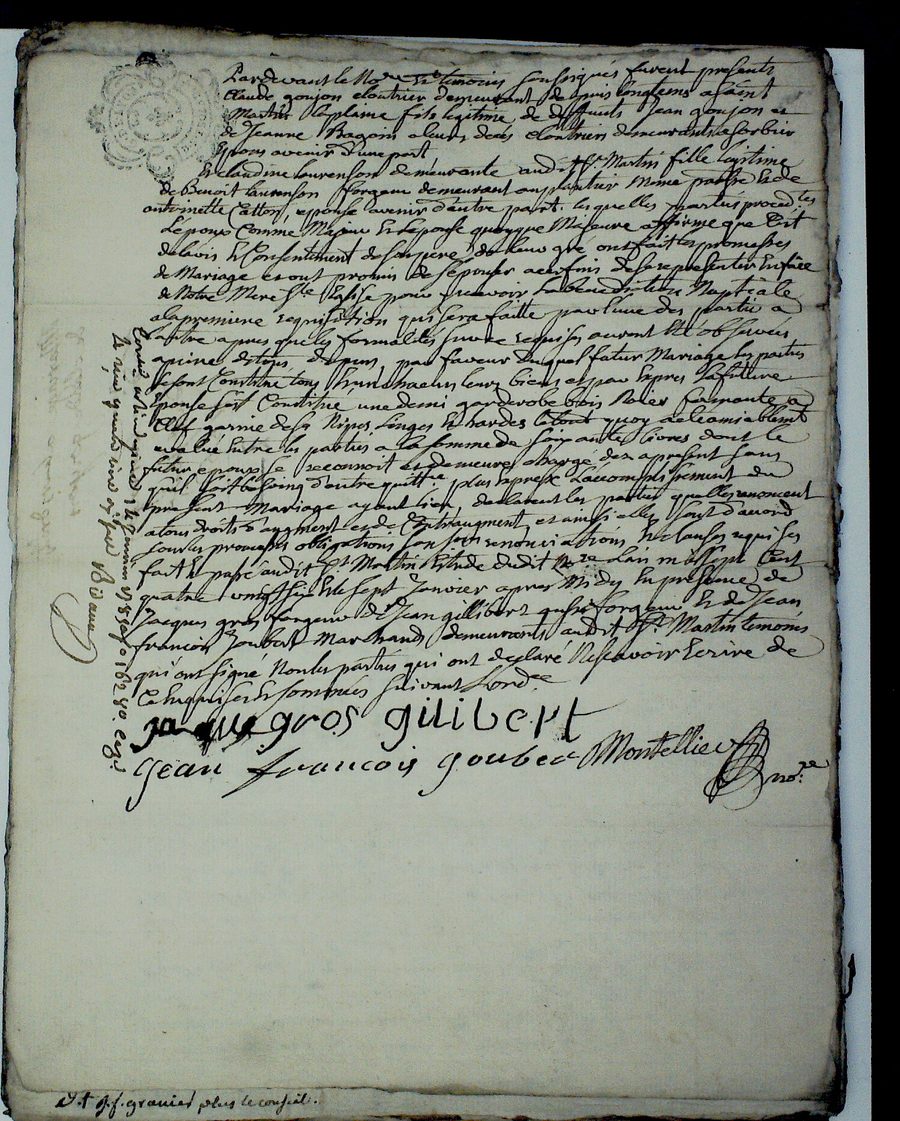 Pardevant le No.re Et témoins soussignés furent présents
Claude goujon cloutrier demeurant depuis longtems a Saint
Martin laplaine fils légitime de deffunts Jean goujon et
de Jeanne
Epoux avenir d'une part
Et claudine laurenson demeurante audit St Martin fille légitime
de Benoit laurenson forgeur demeurant meme parroisse Et de
antoinette Catton, epouse avenir d'autre part. lesquelles parties procedtes
Lépoux Comme Majeur Et lepouse quoyque Mineure affirme que C'est
delavis Et Consentement de son pere, de leur gré ont fait les promesses
de Mariage et ont promis de sépouser aces fins de se representer En face
de Notre Mere Ste Eglise pour recevoir la benediction Nuptiale
ala premiere requisition qui sera faitte par l'une des parties a
lautre apres que les formalités sur ce requises auront été observées
apeine de tous depens, par faveur duquel futur Mariage les parties
se sont Constitué tous Et un chacuns leurs biens et par Expres la future
Epouse s'est Constitué une demi garderobe bois Noier fermante a
Clef garnie de ses Nipes, Linges Et hardes le tout quoy a été amiablement
evalué Entre les parties a la somme de soixante livres dont le
futur epoux se reconnoit et demeure chargé dez apresent sans
qu'il soit besoing d'autre quittce plus expresse L'accomplissement du
present Mariage ayant lieu, declarent les parties quelles renoncent
a tous droits d'augment et de Contraugment, et ainsi elles sont d'accord
sous les promesses obligations renonciations Et clauses requises
fait Et passé audit St Martin Etude dudit No.re L'an mil sept Cent
quatre vingt six Et le Sept Janvier apres Midy En presence de
Jacques gros forgeur Sr Jean gillibert aussi forgeur Et de Jean
francois Joubert Marchands demeurants audit St Martin témoins
qui ont signé Non les parties qui ont declaré Ne scavoir Ecrire de
Ce Enquises Et sommées suivant Lord.ce
jaque gros gilibert
jean francois goubert Montellier
no.re
J.f. granier plus le conseil.